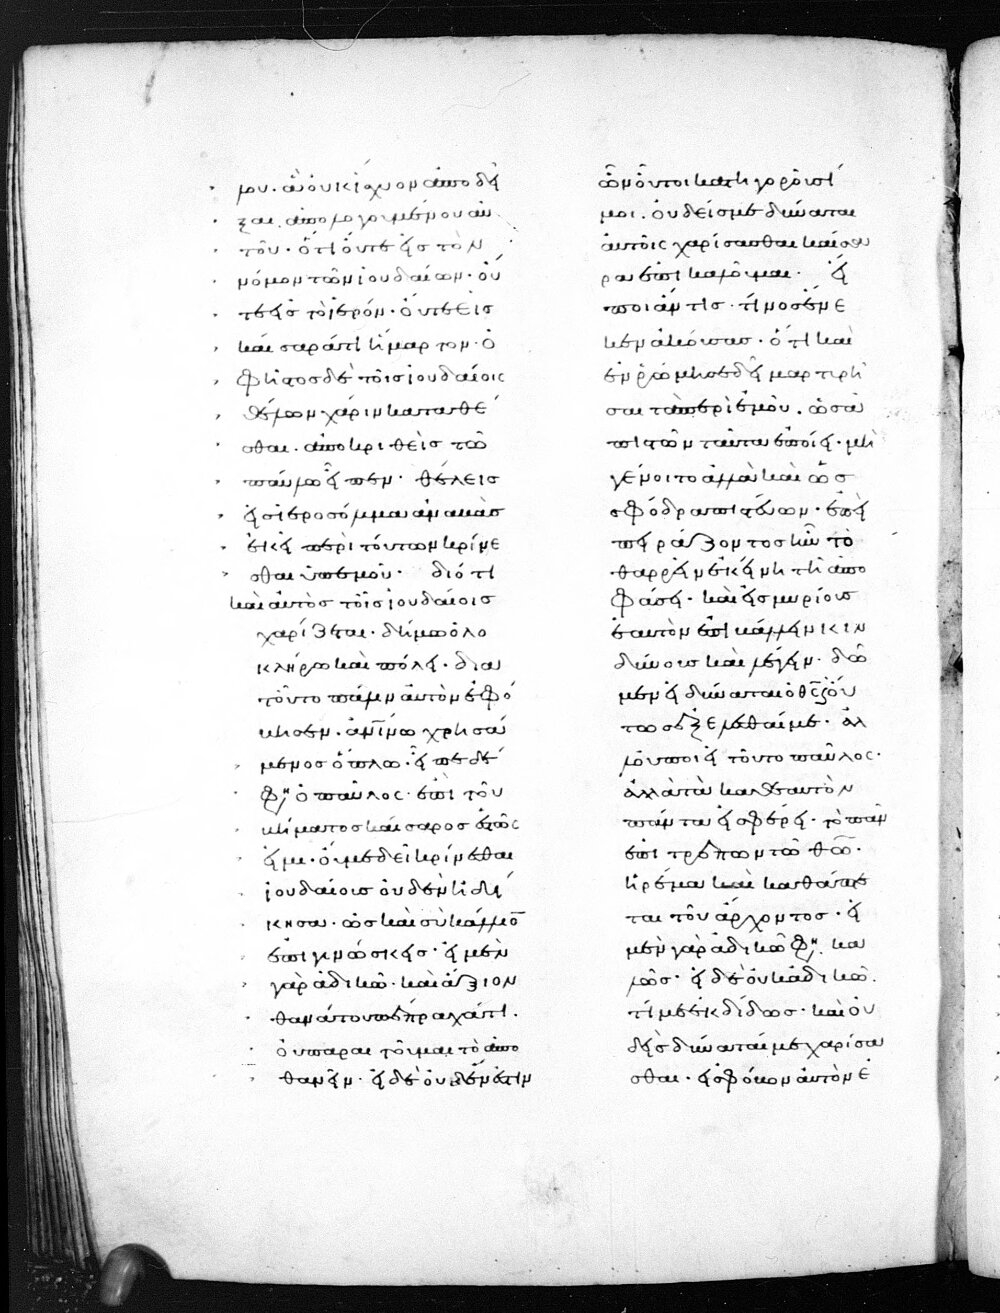 μου· ἃ οὐκ ἴσχυον ἀποδεῖ
ξαι. ἀπολογουμένου αὐ
τοῦ· ὅτι οὔτε εἰς τὸν
νόμον τῶν ἰουδαίων· οὔ
τε εἰς τὸ ἱερόν· οὔτε εἰς
καίσαρά τι ἥμαρτον· ὁ
φῆστος δὲ τοῖς ἰουδαίοις
θέλων χάριν καταθέ
σθαι. ἀποκριθεὶς τῶ
παύλω εἶπεν· θέλεις
εἰς ἱεροσόλυμα ἀναβὰς
ἐκεῖ περὶ τούτων κρίνε
σθαι ἐπ' ἐμοῦ· διό τι
καὶ αὐτὸς τοῖς ἰουδαίοις
χαρίζεται· δήμω ὁλο
κλήρω καὶ πόλει· διὰ
τοῦτο πάλιν αὐτὸν ἐφό
βησεν. ἀνθίνω χρησά
μενος ὅπλω· εἶπε δέ
φη ὁ παῦλος· ἐπὶ τοῦ
βήματος καίσαρος ἑστώς
εἰμι· οὗ με δεῖ κρίνεσθαι
ἰουδαίους οὐδὲν ἠδί
κησα· ὡς καὶ σὺ κάλλιον
ἐπιγινώσκεις· εἰ μὲν
γὰρ ἀδικῶ· καὶ ἄξιον
θανάτου πέπραχά τι.
οὐ παραιτοῦμαι τὸ ἀπο
θανεῖν· εἰ δὲ οὐδέν ἐστιν
ὧν οὗτοι κατηγοροῦσί
μου. οὐδείς με δύναται
αὐτοῖς χαρίσασθαι καίσα
ρα ἐπικαλοῦμαι· εἴ
ποι ἄν τις· τίνος ἕνε
κεν ἀκούσας· ὅτι καὶ
ἐν ῥώμη σε δεῖ μαρτυρῆ
σαι τὰ περὶ ἐμοῦ. ὡς ἀ
πιστῶν ταῦτα ἐποίει· μὴ
γένοιτο ἀλλὰ καὶ ὡς
σφόδρα πιστεύων· ἐπεὶ
πειράζοντος ἦν τὸ
θαρρεῖν ἐκείνη τῆ ἀπο
φάσει· καὶ εἰς μυρίους
ἑαυτὸν ἐπικάλλειν κιν
δύνους καὶ λέγειν· ἴδω
μεν εἰ δύναται ὁ θεὸς οὕ
τως ἐξελέσθαι με· ἀλλ'
οὐ ποιεῖ τοῦτο παῦλος·
ἀλλὰ τὰ καθ' ἑαυτὸν
πάντα εἰσφέρει· τὸ πᾶν
ἐπιτρέπων τῶ θεῶ·
ἠρέμα καὶ καθάπτε
ται τοῦ ἄρχοντος· εἰ
μὲν γὰρ ἀδικῶ φη. κα
λῶς· εἰ δὲ οὐκ ἀδικῶ.
τί με ἐκδίδως· καὶ οὐ
δείς δύναταί με χαρίσα
σθαι· εἰς φόβον αὐτὸν ἐ